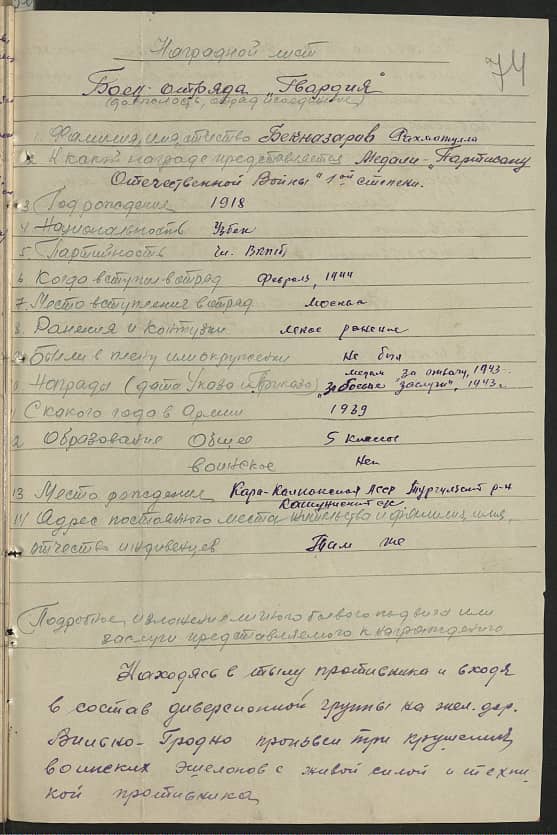 Наградной лист
74
Боец отряда "Гвардия"
(должность, отряд, соединение)
1. Фамилия, имя, отчество Бекназаров Рахматулла
2. К какой награде представляется Медали "Партизану
Отечественной Войны" 1ой степени.
3 Год рождения 1918
4 Национальность Узбек
5. Партийность чл. ВКП(б)
6 Когда вступил в отряд Февраль, 1944
7. Место вступления в отряд Москва
8. Ранения и контузии легкое ранение
9. Были в плену или окружении не был
медаль "За отвагу", 1943.
Награды (дата Указа и Приказа) "За боевые заслуги", 1943г.
С какого года в Армии 1939
2 Образование Общее 5 классов
воинское Нет
13 Место рождения Кара-Калпакская АССР р-н
14 Адрес постоянного места жительства и фамилия, имя,
отчество иждивенцев Там же
Подробное изложение личного боевого подвига или
заслуги представляемого к награждению
Находясь в тылу противника и входя
в состав диверсионной группы на жел. дор.
Вильно-Гродно произвел три крушения
воинских эшелонов с живой силой и техни
кой противника